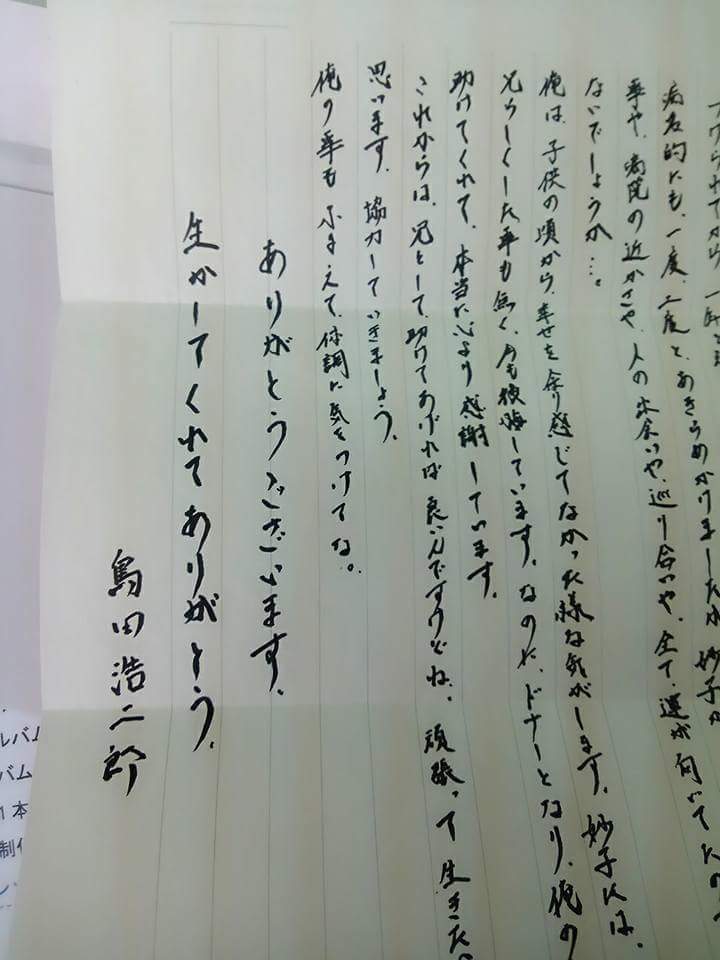 病名的にも、一度、二度と、あきらめかけましたが 妙子が
事や、病院の近かさや、人の出会いや、巡り合いや、全て、運が向いてたの
ないでしょうか…。
俺は、子供の頃から、幸せを余り感じてなかった様な気がします。妙子には、
兄らしくした事も無く、今も後悔しています。なのに、ドナーとなり、俺の
助けてくれて、本当に心より感謝しています。
これからは、兄として、助けてあげれば良いんですけどね。頑張って生きた
思います。協力していきましょう。
俺の事も ふまえて、体調に気をつけてな。
ありがとうございます。
生かしてくれてありがとう。
島田浩二郎
バム
1本